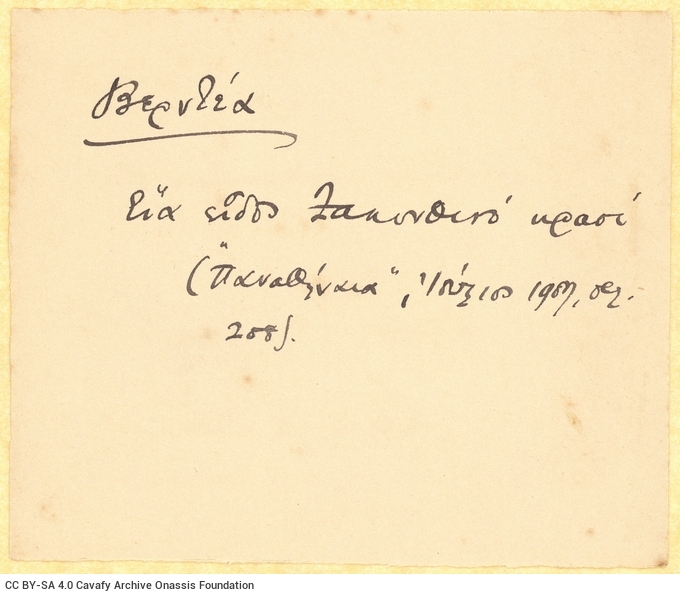 Βερντέα
εἶδος Ζακυνθινό κρασί
("Παναθήναια", Ἰούλιος 1907, σελ.
208).
CC BY-SA 4.0 Cavafy Archive Onassis Foundation